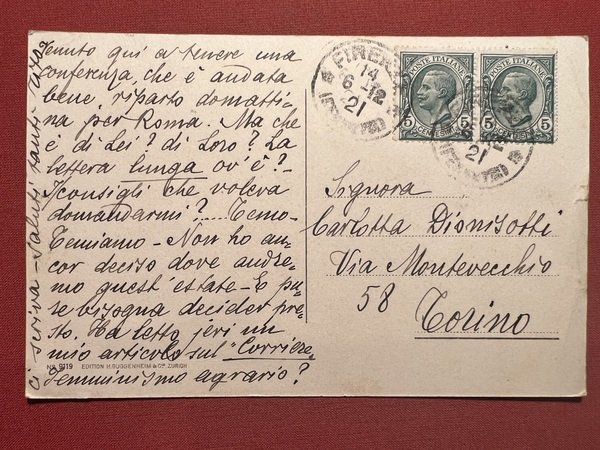 Venuto qui a tenere una
conferenza, che è andata
bene, riparto domatti-
na per Roma. Ma che
è di Lei? di Loro? La
lettera lunga ov'è? -
I consigli che voleva
domandarmi? .... Temo-
Temiamo - Non ho an-
cor deciso dove andre-
mo quest' estate - E pu-
re bisogna decider pre-
sto. Ha letto jeri un
mio articolo sul "Corriere"
Femminismo agrario?
ci scriva - Saluti tanti
No 9119 EDITION H. GUGGENHEIM & Co, ZURICH
FIRENZE
14
6-12
21
POSTE ITALIANE
5 CENTESIMI 5
POSTE ITALIANE
5 5
21
Signora
Carlotta Dionisotti
Via Montevecchio
58 Torino